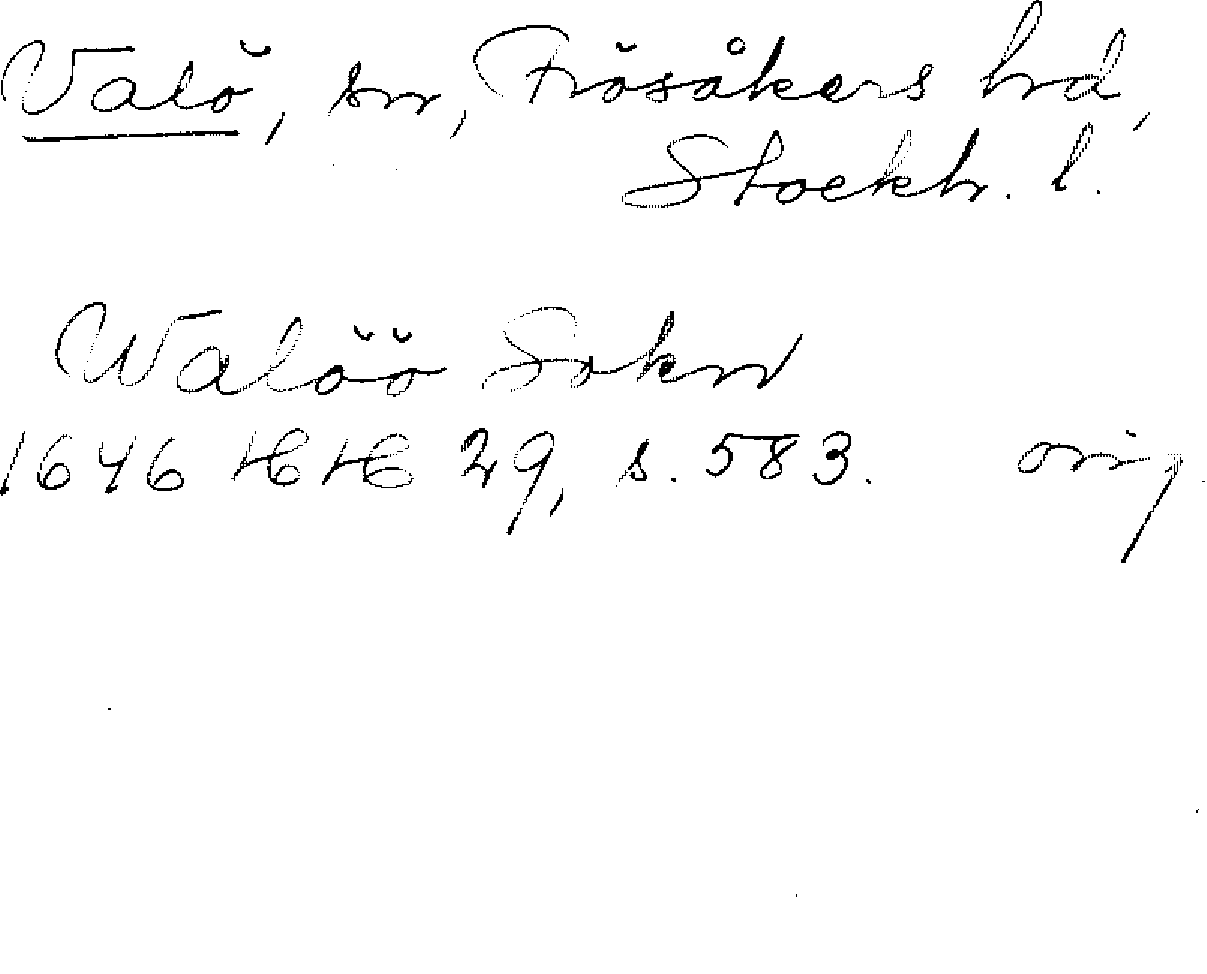 Valö, sn, Frösåkers hrd,
Stockh. l.
Walöö Sokn
1646 HH 29, s. 583. orig